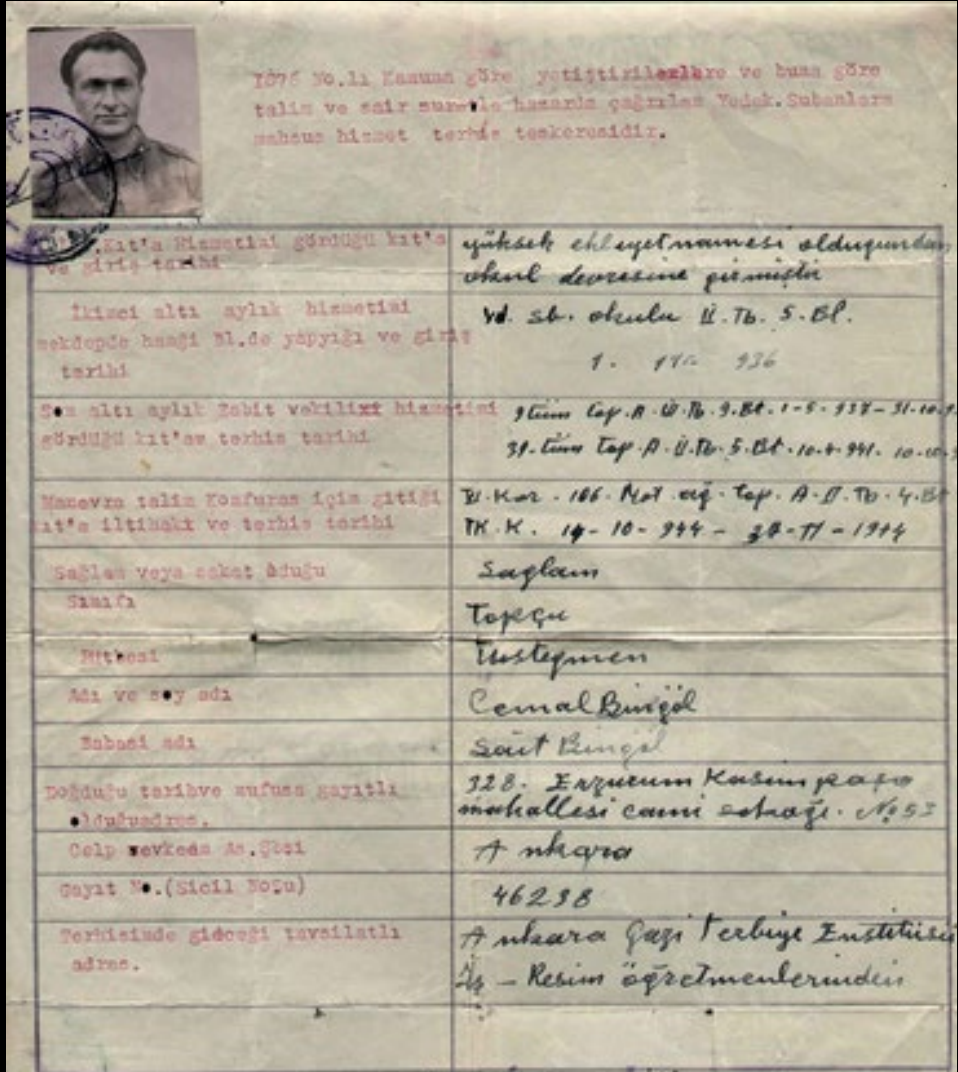 1076 No.lı Kanuna göre yetiştirilenlere ve buna göre
talim ve sair suretle hazarda çağrılan Yedek.Subaylara
mahsus hizmet terhis teskeresidir.
.Kıt'a Hizmetini gördüğü kıt'a
ve giriş tarihi
yüksek ehleyetnamesi olduğundan
okul devresine girmiştir
İkinci altı aylık hizmetini
mekdepde hangi Bl.de yapyığı ve giriş
tarihi
Yd. sb. okulu II. Tb. 5. Bl.
1. 936
Son altı aylık Zabit vekilixi hizmetini
gördüğü kıt'as terhis tarihi
9 tüm Top. A. II. Tb. 9. Bt. 1-5-937-31-10-9
39. tüm Top. A. II. Tb. 5. Bt. 10-4-941. 10-10-
Manevra talim Konfuras için gitiği
kıt'a iltihakı ve terhis tarihi
IV. Kor. 106. Mot. ağ. Top. A-II. Tb. 4. Bt
TK. K. 14-10-944 - 30-11-1944
Sağlam veya sakat ôduğu
Saglam
Sınıfı
Topçu
Rütbesi
Üsteğmen
Adı ve soy adı
Cemal Bingöl
Babasi adı
Sait Bingöl
Doğduğu tarihve nufusa gayıtlı
olduğuadres.
328. Erzurum Kasımpaşa
mahallesi cami sokağı. No 53
Celp sevkeden As.Şbsi
Ankara
Gayıt No.(Sicil Noşu)
46298
Terhisinde gideceği tavsilatlı
adres.
Ankara Gazi Terbiye Enstitüsü
İş - Resim öğretmenlerinden